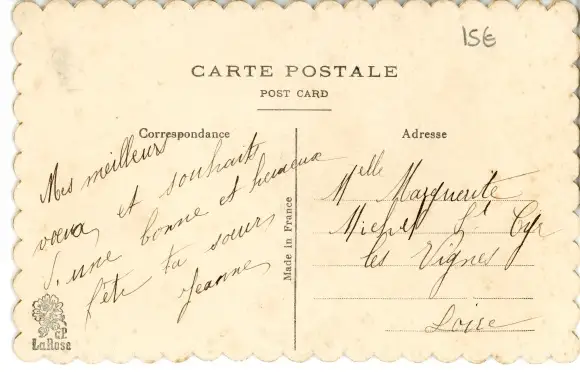 15€
CARTE POSTALE
POST CARD
Correspondance
Mes meilleurs
vœux et souhaits
d'une bonne et heureuse
fête ta sœur
Jeanne
Made in France
LaRose
Adresse
Melle Marguerite
Michel St Cyr
les Vignes
Loire